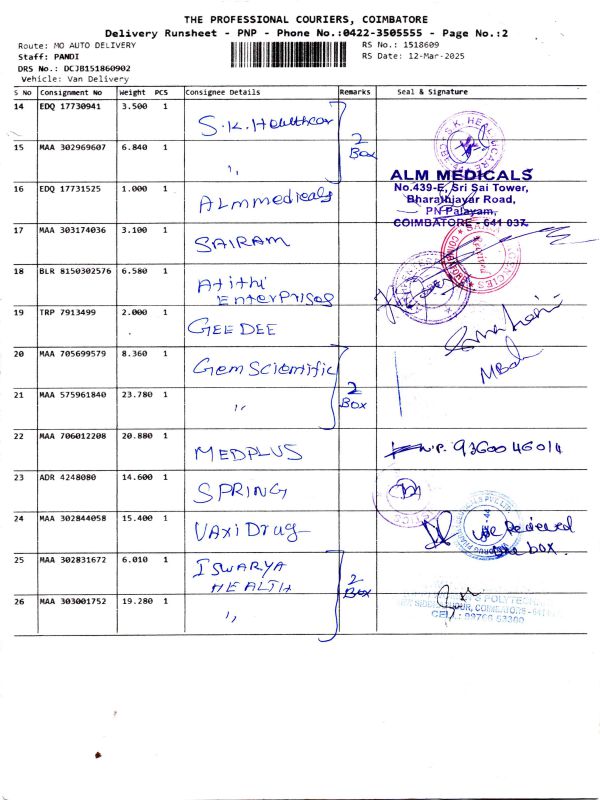 THE PROFESSIONAL COURIERS, COIMBATORE
Delivery Runsheet - PNP - Phone No.:0422-3505555 - Page No.:2
Route: MO AUTO DELIVERY RS No.: 1518609
Staff: PANDI RS Date: 12-Mar-2025
DRS No.: DCJB151860902
Vehicle: Van Delivery
S No Consignment No Weight PCS Consignee Details Remarks Seal & Signature
14 EDQ 17730941 3.500 1 S.K. Healthcar 2 Box
15 MAA 302969607 6.840 1 ,,
16 EDQ 17731525 1.000 1 ALmmedicals
ALM MEDICALS
No.439-E, Sri Sai Tower,
Bharathjayar Road,
PN Palayam,
COIMBATORE - 641 037.
17 MAA 303174036 3.100 1 SAIRAM
18 BLR 8150302576 6.580 1 Atithi
EnterPrises
19 TRP 7913499 2.000 1 GEE DEE
20 MAA 705699579 8.360 1 Gem Scientific 2 Box
21 MAA 575961840 23.780 1 ,,
22 MAA 706012208 20.880 1 MEDPLUS 9360046014
23 ADR 4248080 14.600 1 SPRING
24 MAA 302844058 15.400 1 VAxi Drug We Recieved
one box.
25 MAA 302831672 6.010 1 ISWARYA
HEALTH 2 Box
26 MAA 303001752 19.280 1 ,,